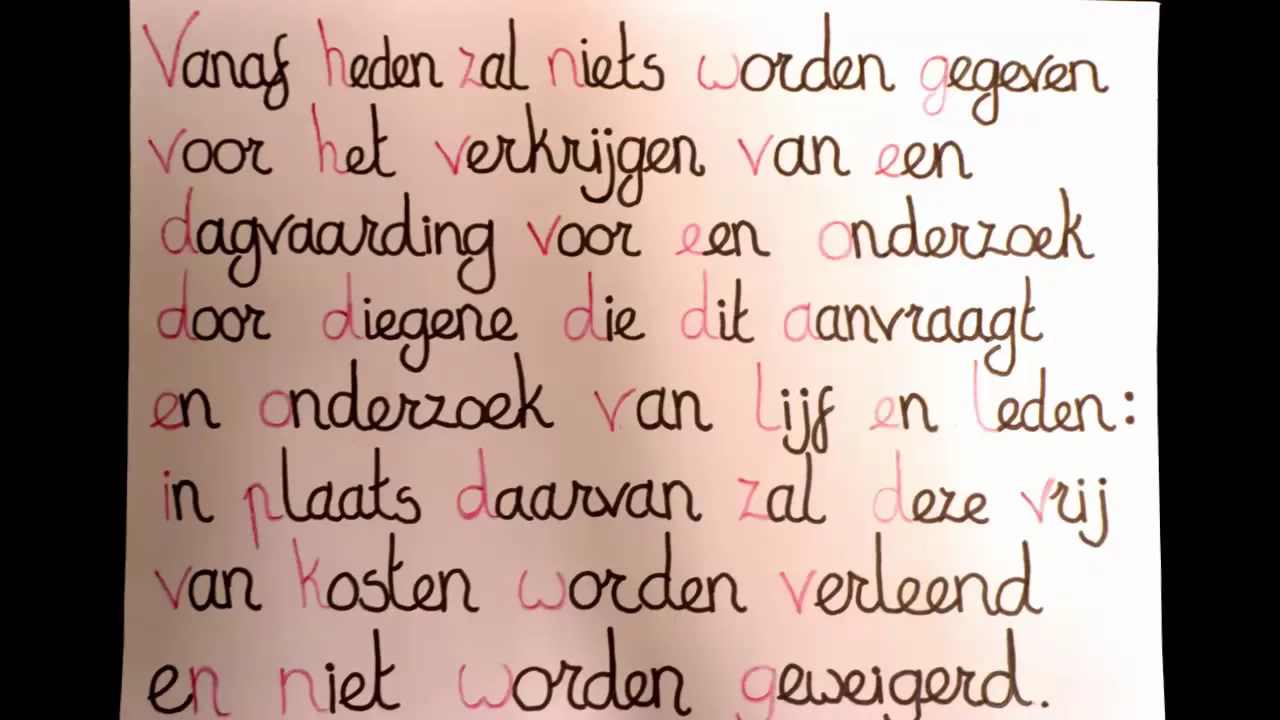 Vanaf heden zal niets worden gegeven
voor het verkrijgen van een
dagvaarding voor een onderzoek
door diegene die dit aanvraagt
en onderzoek van lijf en leden:
in plaats daarvan zal deze vrij
van kosten worden verleend
en niet worden geweigerd.